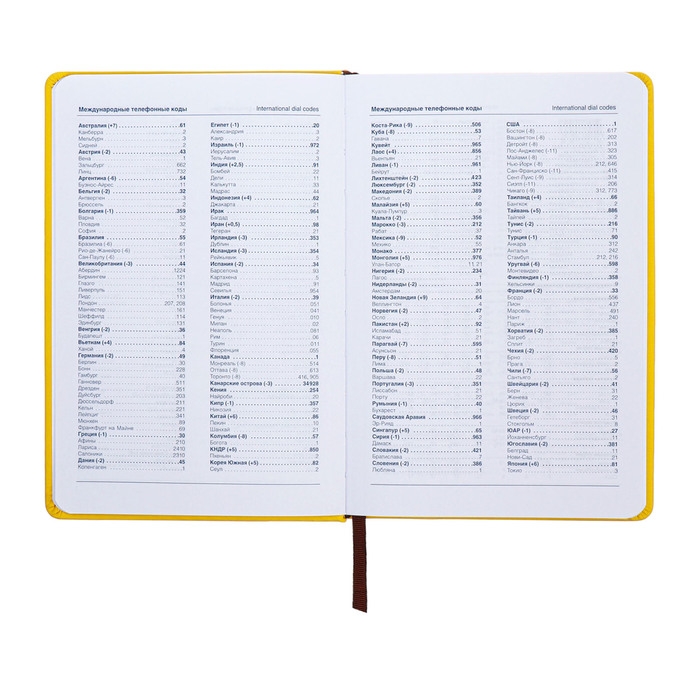 Международные телефонные коды
International dial codes
Австралия (+7) 61
Канберра 2
Мельбурн 3
Сидней 2
Австрия (-2) 43
Вена 1
Зальцбург 662
Линц 732
Аргентина (-6) 54
Буэнос-Айрес 11
Бельгия (-2) 32
Антверпен 3
Брюссель 2
Болгария (-1) 359
Варна 52
Пловдив 32
София 2
Бразилия 55
Бразилиа (-6) 61
Рио-де-Жанейро (-6) 21
Сан-Паулу (-6) 11
Великобритания (-3) 44
Абердин 1224
Бирмингем 121
Глазго 141
Ливерпуль 151
Лидс 113
Лондон 207, 208
Манчестер 161
Шеффилд 114
Эдинбург 131
Венгрия (-2) 36
Будапешт 1
Вьетнам (+4) 84
Ханой 4
Германия (-2) 49
Берлин 30
Бонн 228
Гамбург 40
Ганновер 511
Дрезден 351
Дуйсбург 203
Дюссельдорф 211
Кельн 221
Лейпциг 341
Мюнхен 89
Франкфурт на Майне 69
Греция (-1) 30
Афины 210
Лариса 2410
Салоники 2310
Дания (-2) 45
Копенгаген 1
Египет (-1) 20
Александрия 3
Каир 2
Израиль (-1) 972
Иерусалим 2
Тель-Авив 3
Индия (+2,5) 91
Бомбей 22
Дели 11
Калькутта 33
Мадрас 44
Индонезия (+4) 62
Джакарта 21
Ирак 964
Багдад 1
Иран (+0,5) 98
Тегеран 21
Ирландия (-3) 353
Дублин 1
Исландия (-3) 354
Рейкьявик 5
Испания (-2) 34
Барселона 93
Картахена 5
Мадрид 91
Севилья 954
Италия (-2) 39
Болонья 051
Венеция 041
Генуя 010
Милан 02
Неаполь 081
Рим 06
Турин 011
Флоренция 055
Канада 1
Монреаль (-8) 514
Оттава (-8) 613
Торонто (-8) 416, 905
Канарские острова (-3) 34928
Кения 254
Найроби 20
Кипр (-1) 357
Никозия 22
Китай (+6) 86
Пекин 10
Шанхай 21
Колумбия (-8) 57
Богота 1
КНДР (+5) 850
Пхеньян 2
Корея Южная (+5) 82
Сеул 2
Международные телефонные коды
International dial codes
Коста-Рика (-9) 506
Куба (-8) 53
Гавана 7
Кувейт 965
Лаос (+4) 856
Вьентьян 21
Ливан (-1) 961
Бейрут 1
Лихтенштейн (-2) 423
Люксембург (-2) 352
Македония (-2) 389
Скопье 2
Малайзия (+5) 60
Куала-Лумпур 3
Мальта (-2) 356
Марокко (-3) 212
Рабат 37
Мексика (-9) 52
Мехико 55
Монако 377
Монголия (+5) 976
Улан-Батор 11 21
Нигерия (-2) 234
Лагос 1
Нидерланды (-2) 31
Амстердам 20
Новая Зеландия (+9) 64
Веллингтон 4
Норвегия (-2) 47
Осло 2
Пакистан (+2) 92
Исламабад 51
Карачи 21
Парагвай (-7) 595
Асунсьон 21
Перу (-8) 51
Лима 1
Польша (-2) 48
Варшава 22
Португалия (-3) 351
Лиссабон 21
Порту 22
Румыния (-1) 40
Бухарест 1
Саудовская Аравия 966
Эр-Рияд 1
Сингапур (+5) 65
Сирия (-1) 963
Дамаск 11
Словакия (-2) 421
Братислава 7
Словения (-2) 386
Любляна 1
США 1
Бостон (-8) 617
Вашингтон (-8) 202
Детройт (-8) 313
Лос-Анджелес (-11) 323
Майами (-8) 305
Нью-Йорк (-8) 212, 646
Сан-Франциско (-11) 415
Сент-Луис (-9) 314
Сиэтл (-11) 206
Чикаго (-9) 312, 773
Таиланд (+4) 66
Бангкок 2
Тайвань (+5) 886
Тайпей 2
Тунис (-2) 216
Тунис 71
Турция (-1) 90
Анкара 312
Анталья 242
Стамбул 212, 216
Уругвай (-6) 598
Монтевидео 2
Финляндия (-1) 358
Хельсинки 9
Франция (-2) 33
Бордо 556
Лион 437
Марсель 491
Нант 240
Париж 1
Хорватия (-2) 385
Загреб 1
Сплит 21
Чехия (-2) 420
Брно 5
Прага 2
Чили (-7) 56
Сантьяго 2
Швейцария (-2) 41
Берн 31
Женева 22
Цюрих
Швеция (-2) 46
Гетеборг 31
Стокгольм 8
ЮАР (-1) 27
Йоханнесбург 11
Югославия (-2) 381
Белград 11
Нови-Сад 21
Япония (+6) 81
Токио 3